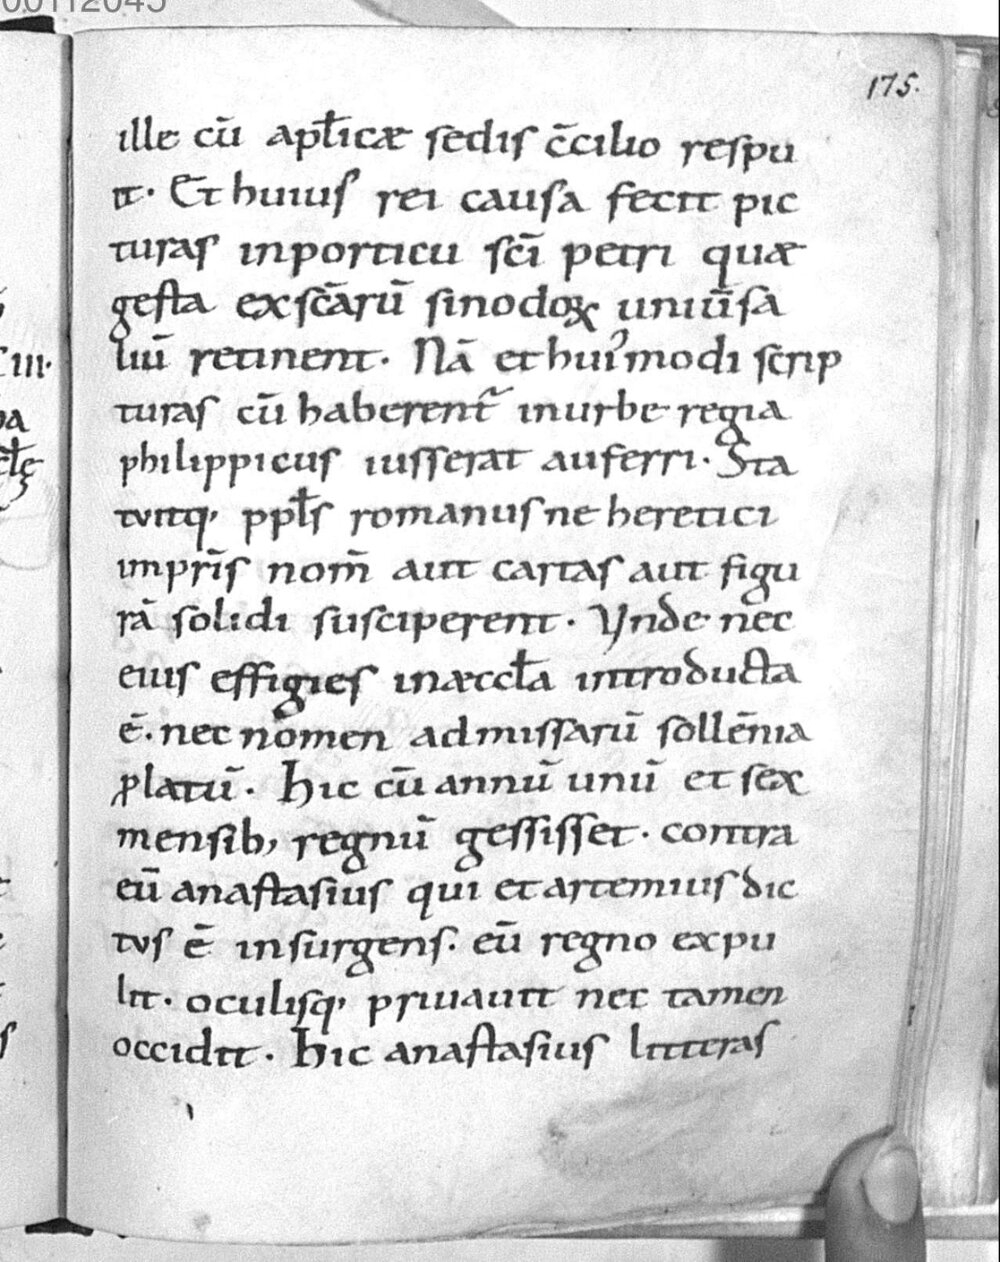 00112045
175.
ille cū apl̄icæ sedis c̄cilio respu
it. Et huius rei causa fecit pic
turas inporticu sc̄i petri quæ
gesta exsc̄arū sinodoꝝ uniūsa
liū retinent. Nā et hui᾽modi scrip
turas cū haberent᷑ inurbe regia
philippicus iusserat auferri. Sta
tvitq, ppl̄s romanus ne heretici
impr̄is nom̄ aut cartas aut figu
rā solidi susciperent. Vnde nec
eius effigies inæccl̄a introducta
ē. nec nomen admissarū sollēnia
ꝓlatū. Hic cū annū unū et sex
mensib, regnū gessisset. contra
eū anastasius qui et artemius dic
tvs ē insurgens. eū regno expu
lit. oculisq, priuauit nec tamen
occidit. Hic anastasius litteras